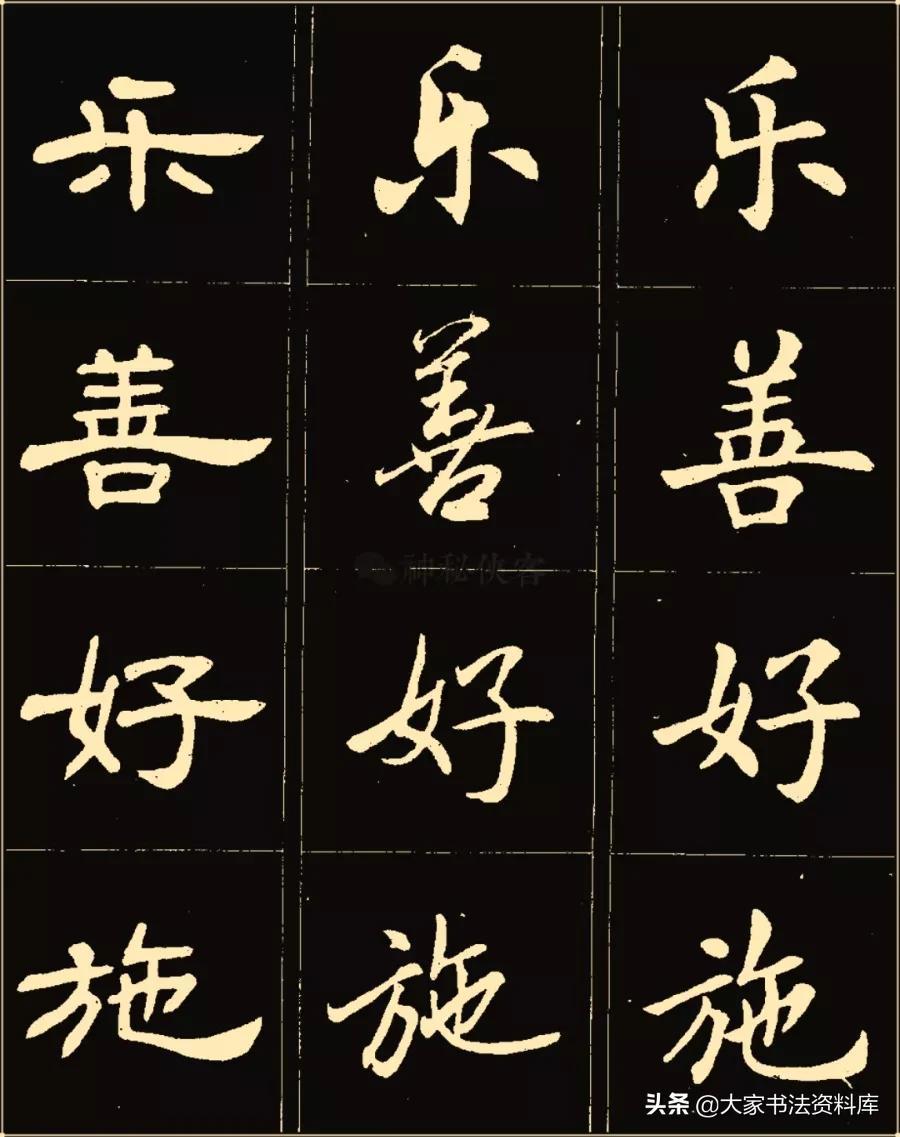 乐 乐 乐
善 善 善
神秘侠客
好 好 好
施 施 施
头条 @大家书法资料库